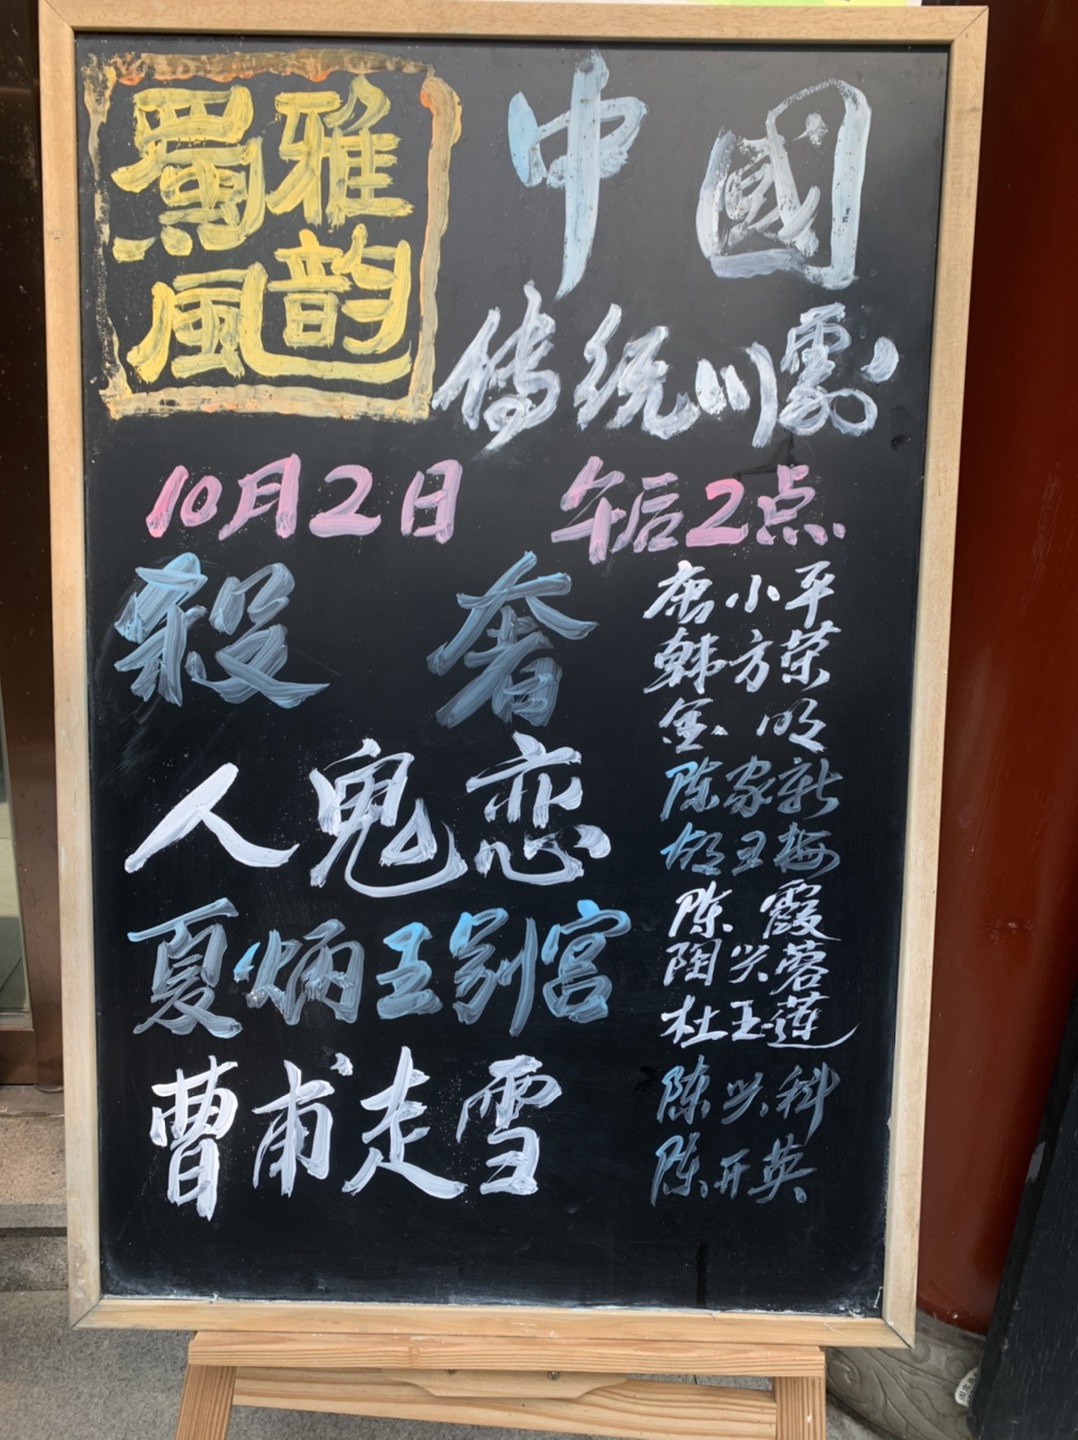 蜀風雅韵
中國
传统川劇
10月2日 午后2点
殺奢
人鬼恋
夏炳王别宫
曹甫走雪
唐小平
韩方荣
金明
陈家新
胡玉梅
陈霞
陶兴蓉
杜玉莲
陈兴科
陈开英